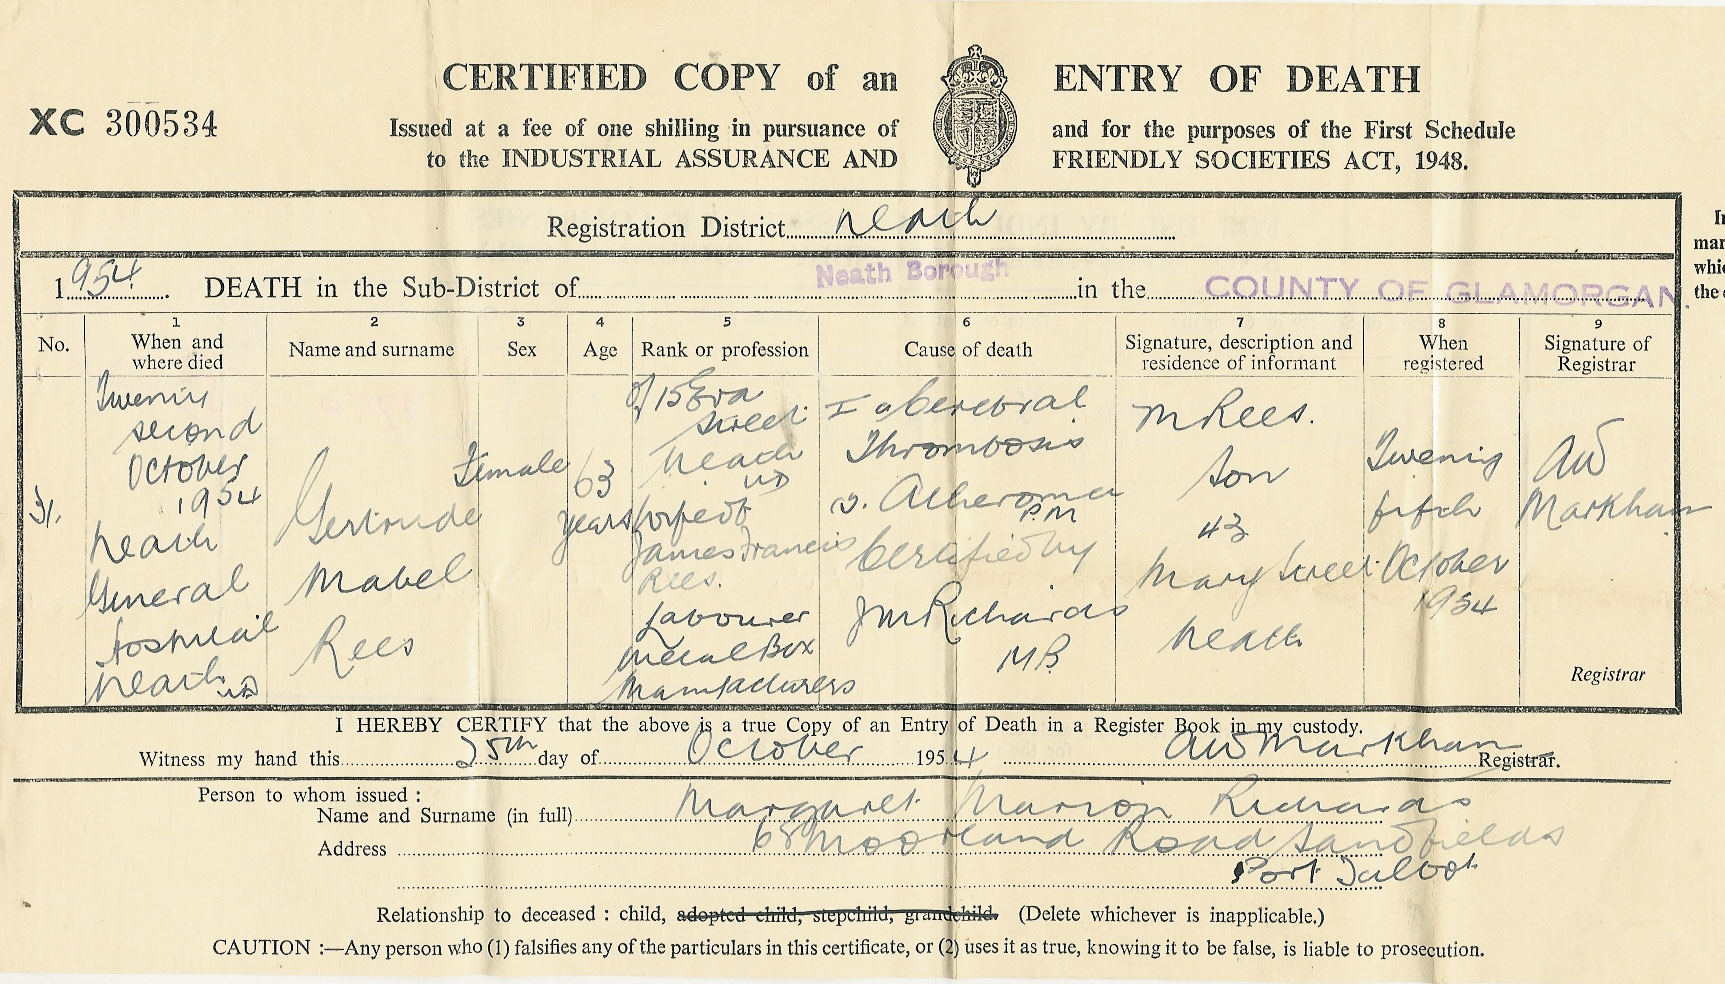 CERTIFIED COPY of an ENTRY OF DEATH
XC 300534
Issued at a fee of one shilling in pursuance of and for the purposes of the First Schedule
to the INDUSTRIAL ASSURANCE AND FRIENDLY SOCIETIES ACT, 1948.
Registration District Neath
1954. DEATH in the Sub-District of Neath Borough in the COUNTY OF GLAMORGAN
No.
1
When and
where died
2
Name and surname
3
Sex
4
Age
5
Rank or profession
6
Cause of death
7
Signature, description and
residence of informant
8
When
registered
9
Signature of
Registrar
31.
Twenty
second
October
1954
Neath
General
Hospital
Neath UD
Gertrude
Mabel
Rees
Female
63
years
of 15 Eva
Street
Neath
UD
Wife of
James Francis
Rees.
Labourer
Metal Box
Manufacturers
I a Cerebral
Thrombosis
Atheroma
P.M
Certified by
J M Richards
M.B.
M Rees.
Son
43
Mary Street
Neath
Twenty
fifth
October
1954
AW
Markham
Registrar
I HEREBY CERTIFY that the above is a true Copy of an Entry of Death in a Register Book in my custody.
Witness my hand this 25th day of October 1954 AW Markham Registrar.
Person to whom issued :
Name and Surname (in full) Margaret Marion Richards
Address 68 Moorland Road Sandfields
Port Talbot
Relationship to deceased : child, adopted child, stepchild, grandchild. (Delete whichever is inapplicable.)
CAUTION :—Any person who (1) falsifies any of the particulars in this certificate, or (2) uses it as true, knowing it to be false, is liable to prosecution.